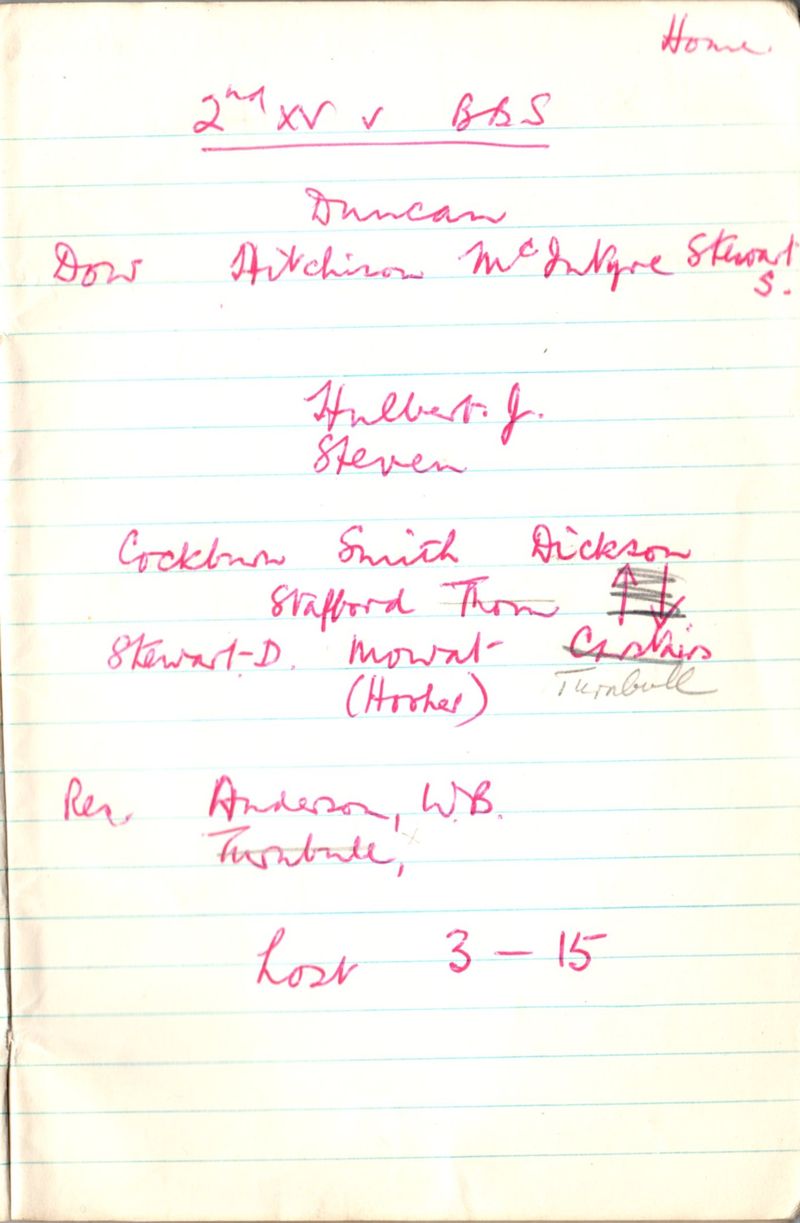 Home.
2nd XV v BBS
Duncan
Dow Aitchison McIntyre Stewart
S.
Hulbert. J.
Steven
Cockburn Smith Dickson
Stafford Thom
Stewart-D. Mowat Carstairs
(Hooker) Turnbull
Res. Anderson, W.B.
Turnbull,
Lost 3 – 15